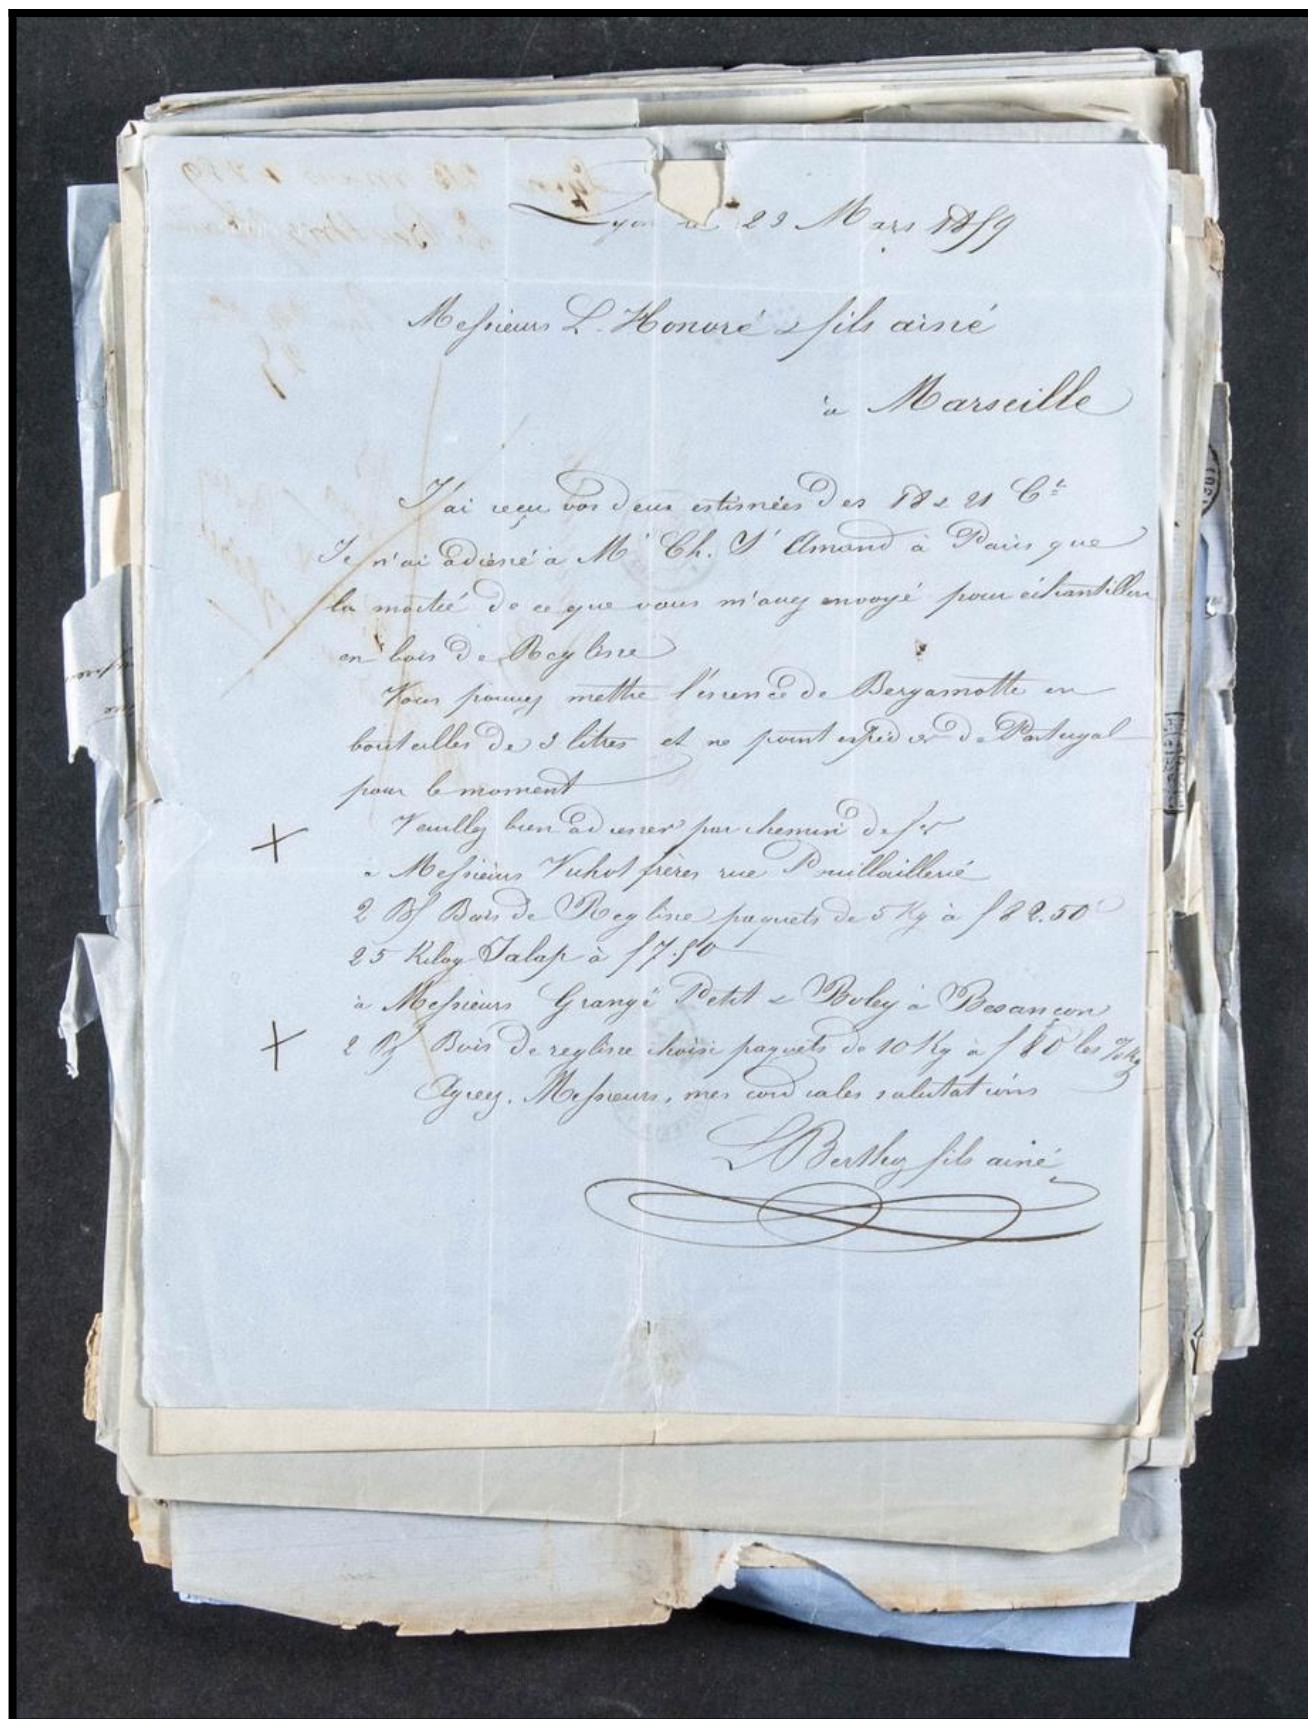 Lyon le 23 Mars 1859
Messieurs L. Honoré & fils ainé
à Marseille
J'ai reçu vos deux estimées des 18 & 21 Ct
Je n'ai adressé à Mr Ch. St Amand à Paris que
la moitié de ce que vous m'avez envoyé pour échantillon
en bois de Reglisse
Vous pouvez mettre l'essence de Bergamotte en
bouteilles de 3 litres et ne point expédier de Portugal
pour le moment
Veuillez bien adresser par chemin de fer
à Messieurs Vuhot frères rue Pouillaillerie
2 Bs Bois de Reglisse paquets de 5 Kg à f 82.50
25 Kilog Jalap à f 7.50
à Messieurs Grangé Petit & Boley à Besancon
2 Bs Bois de reglisse choisi paquets de 10 Kg à f 80 les % Kg
Agreez, Messieurs, mes cordiales salutations
L Berthoz fils ainé